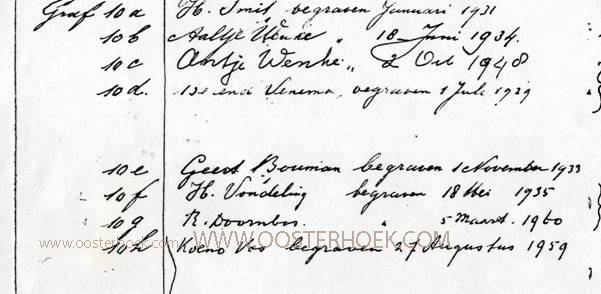 Graf 10a H. Smit, begraven Januari 1931
10b Aaltje Wenke " 18 Juni 1934.
10c Antje Wenke " 2 Oct 1948
10d. Venema, begraven 1 Juli 1929
10e Geert Bouman begraven 1 November 1933
10f H. Vondeling begraven 18 Mei 1935
10g R. Doornbos. " 5 Maart. 1960
10h Koeno Vos begraven 27 Augustus 1959
www.oosterhoek.com
WWW.OOSTERHOEK.COM